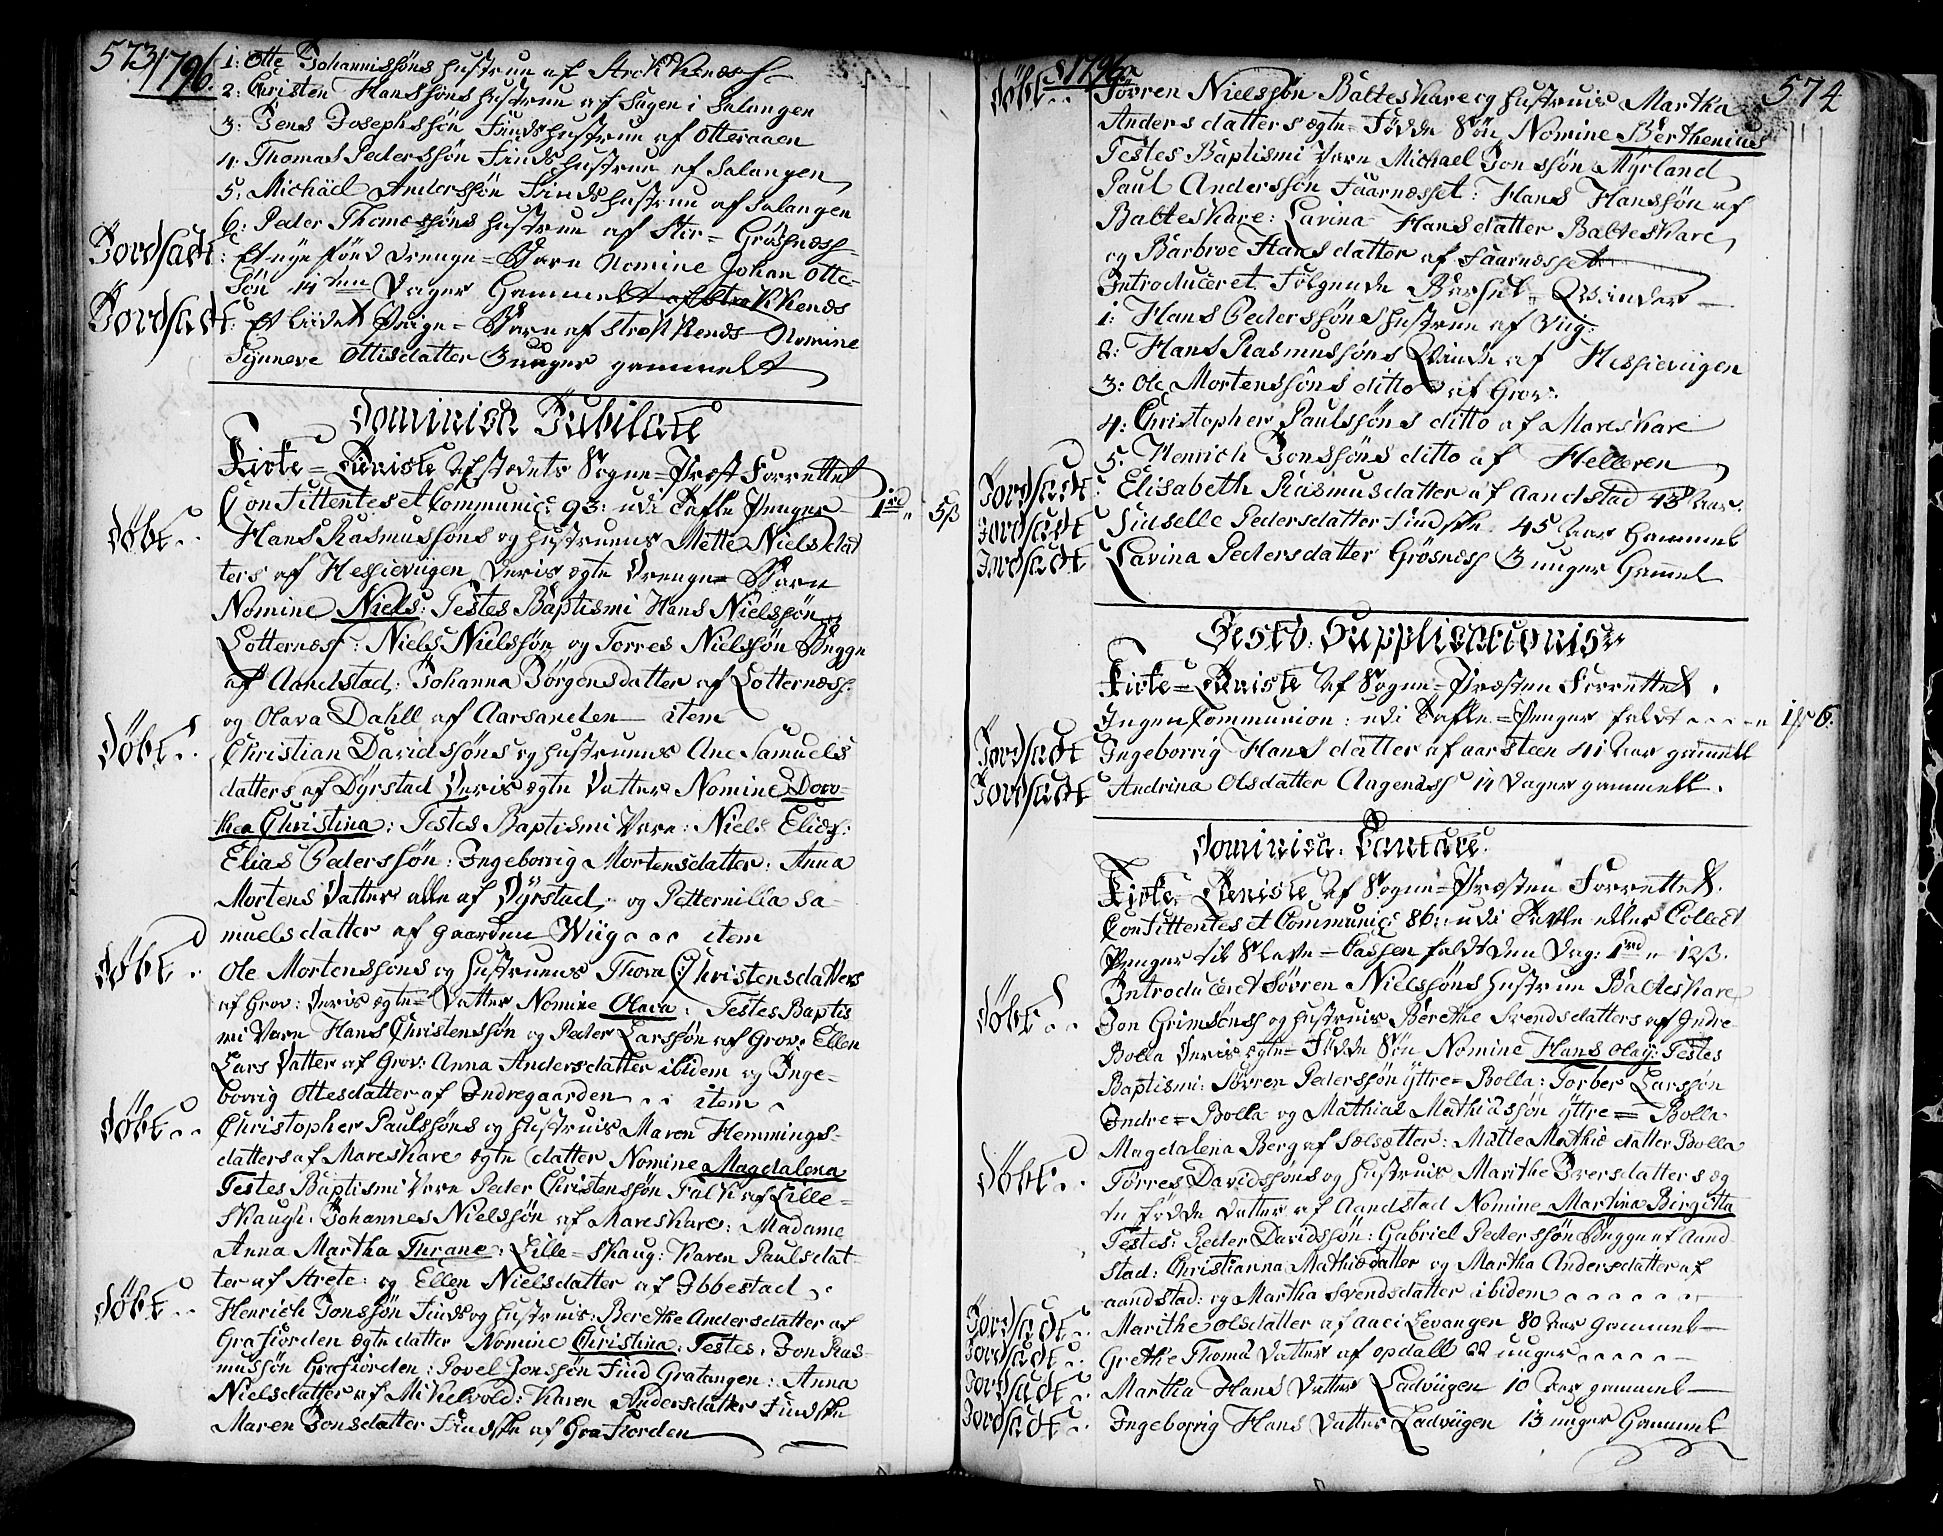 573 1796.
1: Otte Johannissøns Hustrue af StrokKenæs
2: Christen Hanssøns Hustrue af Sagen i Salangen
3: Jens Josephssøn Finds Hustrue af Otteraaen
4. Thomas Pederssøn Finds Hustrue af Salangen
5. Michäel Anderssøn Finds Hustrue af Salangen
6: Peder Thomessøns Hustrue af Stor= Grøsnæss
Jordfæstet: Et nye født Drenge=Barn Nomine Johan Otte-
søn 14 ten Dager Gammelt af StrokKenæs
Jordfæstet: Et liidet Piige=Barn af StrokKenæs Nomine
Synneve Ottisdatter 3 uuger gammelt
Dominica Jubilate
Kirke=Tieniste af Stædets Sogne=Præst Forrettet
Confittentes et Communic: 93: udi Tafle Penger 1 rd " 5 ß
Døbt.. Hans Rasmussøns og Hustruens Mette Nielsdat
ters af Hessieviigen Deris ægte Drenge=Barn
Nomine Niels: Testes Baptismi Hans Nielssøn
Lotternæss: Niels Nielssøn og Torres Nielssøn Begge
af Aandstad: Johanna Jørgensdatter af Lotternæss:
og Olava Dahll af Aarsanden item
Døbt.. Christian Davidssøns og Hustruens Ane Samuels
datters af Dyrstad Deris ægte Datter Nomine Doro-
thea Christina: Testes Baptismi Vare: Niels Eliæs:
Elias Pederssøn: Ingeborrig Mortensdatter: Anna
Mortens Datter alle af Dyrstad, og Petternilla Sa-
muelsdatter af gaarden Wiig... item
Døbt. Ole Mortenssøns og Hustruens Thora Christensdatters
af Grov: Deris ægte=Datter Nomine Olava: Testes Baptis
mi Vare Hans Christenssøn og Peder Larssøn af Grov: Ellen
Lars Datter af Grov: Anna Andersdatter ibidem og Inge-
borrig Ottesdatter af Indregaarden .. item
Døbt.. Christopher Paulssøns og Hustruis Maren Hemmings-
datters af MaresKare ægte datter Nomine Magdalena
Testes Baptismi Vare Peder Christenssøn Falk af Lille-
Skaugh. Johannes Nielssøn af MaresKare: Madame
Anna Martha Thrane: Lille=Skaug: Karen Paulsdat-
ter af Strete: og Ellen Nielsdatter af Ibbestad
Døbt.. Henrich Jonssøn Finds og Hustruis: Berethe Andersdatter af
Grafiorden ægte datter Nomine Christina: Testes: Jon Ras-
mussøn Grafiorden: Povel Jonssøn Find Gratangen: Anna
Nielsdatter af Mikelvold: Karen Andersdatter Findske
Maren Jonsdatter Findske af Grafiorden
1796. 574
Døbt.. Sørren Nielssøn BaltesKare og Hustruis Martha
Andersdatters ægte=Fødde Søn Nomine Berthenius
Testes Baptismi Vare Michael Jonssøn Myrland
Paul Anderssøn Faarnæsset: Hans Hanssøn af
BaltesKare: Lavina Hansdatter BaltesKare
og Barbroe Hansdatter af Faarnæsset
Introduceret Følgende Barsel=Qvinder
1: Hans Pederssøns Hustrue af Viig:
2: Hans Rasmussøns Qvinde af Hessieviigen
3: Ole Mortenssøns ditto af Grov:
4: Christopher Paulssøns ditto af MaresKare
5. Henrich Jonssøns ditto af Helleren
Jordfæstet: Elisabeth Rasmusdatter af Aandstad 43 Aar.
Jordfæstet Sidselle Pedersdatter Findske 45 Aar Gammel
Jordfæstet Lavina Pedersdatter Grøsnæss 3 uuger Gammel
Festo Supplicationis
Kirke=Tieniste af Sogne=Præsten Forrettet.
Ingen Communion: udi Tafle=Penger faldt .... 1 ß 6.
Jordfæstet Ingeborrig Hansdatter af aarsteen 41 Aar gammell
Jordfæstet Andrina Olsdatter Aagenæss 14 Dager gammell.
Dominica. Cantate.
Kirke=Tieniste af Sogne=Præsten Forrettet.
Confittentes et Communic: 86: udi Tavle eller Collect
Penger til Slave=Cassen faldt den Dag: 1 rd " 12 ß.
Introduceret Sørren Nielssøns Hustrue BaltesKare
Døbt.. Jon Grimsønss og Hustruis Berethe Svendsdatters af Indre-
Bolla Deris ægte=Fødde Søn Nomine Hans Olay: Testes
Baptismi: Sørren Pederssøn Yttre=Bolla: Torber Larssøn
Indre=Bolla og Mathias Mathiassøn Yttre=Bolla
Magdalena Berg af Sælsætter: Mætte Mathiæ datter Bolla
Døbt.. Torres Davidssøns og Hustruis Marithe Iversdatters æg
te fødde datter af Aandstad Nomine Martina Birgitta
Testes: Peder Davidssøn: Gabriel Pederssøn Begge af Aand-
stad: Christianna Mathiædatter og Martha Andersdatter af
aandstad: og Martha Svendsdatter ibidem ......
Jordfæstet.. Marithe Olsdatter af aaei Levangen 80 Aar gammel
Jordfæstet.. Grethe Thoma Datter af Opdall 22 uuger .....
Jordfæstet.. Martha Hans Datter Ladviigen 10 Aar gammel
Jordfæstet.. Ingeborrig Hans Datter Ladviigen 13 uuger Gammel